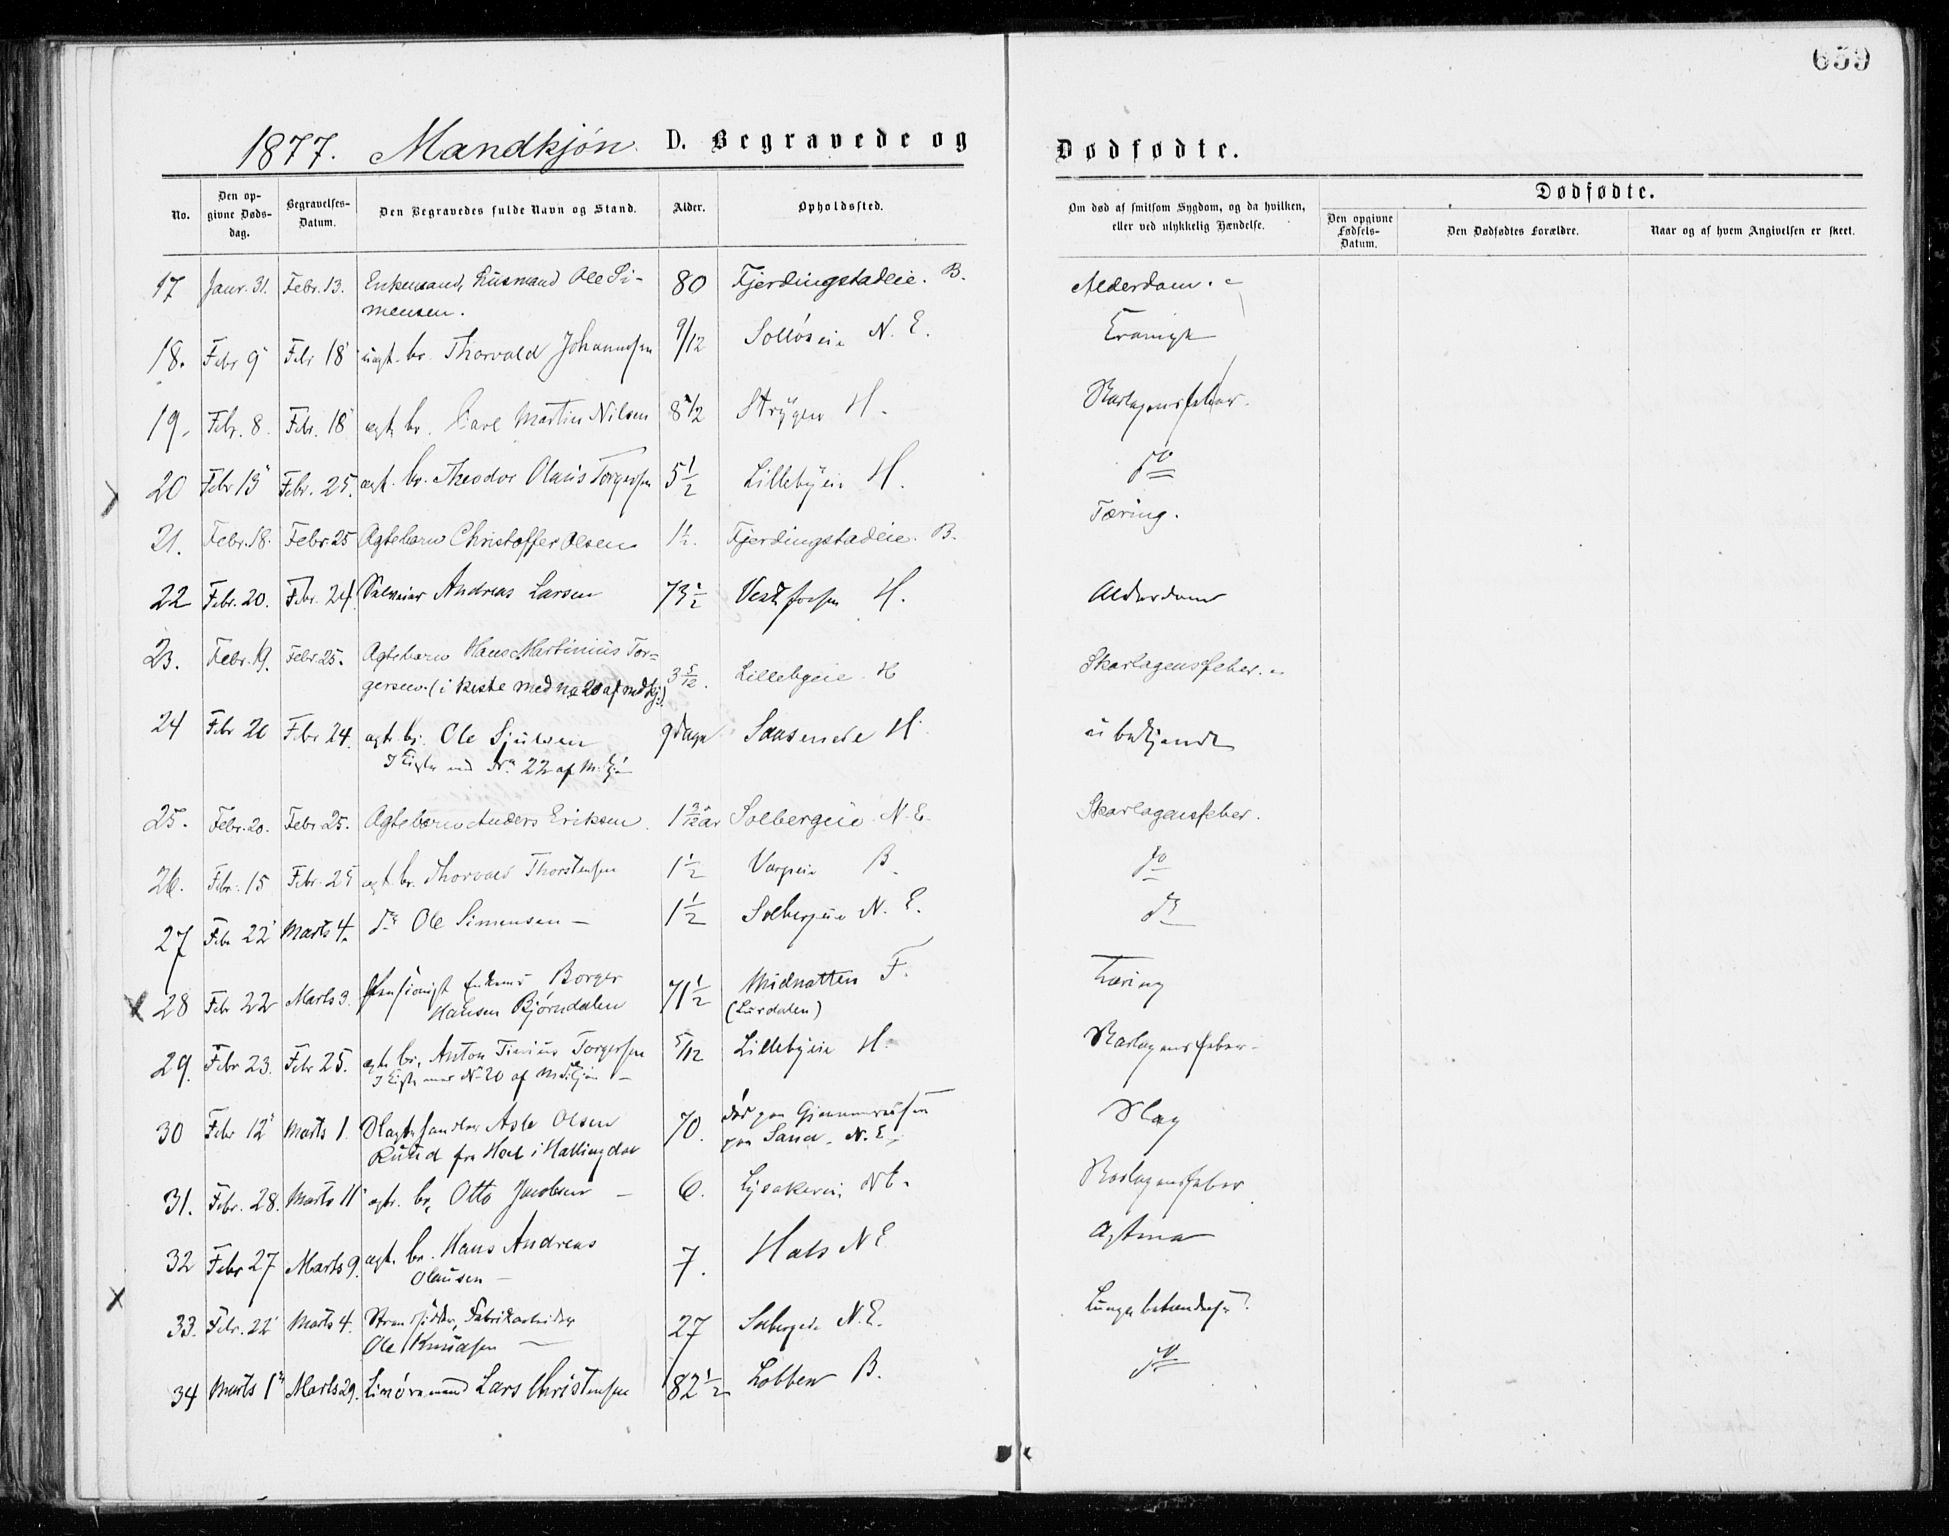 659
1877. Mandkjøn. D. Begravede og Dødfødte.
No. Den opgivne Dødsdag. Begravelses-Datum. Den Begravedes fulde Navn og Stand. Alder. Opholdssted. Om død af smitsom Sygdom, og da hvilken, eller ved ulykkelig Hændelse. Dødfødte. Den opgivne Fødsels-Datum. Den Dødfødtes Forældre. Naar og af hvem Angivelsen er skeet.
17 Janr. 31. Febr. 13. Enkemand, Husmand Ole Si- 80 Fjerdingstadeie. B. Alderdom.
mensen.
18. Febr 9 Febr 18 uægt. br. Thorvald Johannesen 9/12 Solløseie N. E.
19. Febr. 8. Febr. 18 ægt. br. Carl Martin Nilsen 8 1/2 Strygen H. Skarlagensfeber.
20 Febr 13 Febr. 25. ægt. br. Theodor Olaus Torgersen 5 1/2 Lillebyeie H. do
21. Febr. 18. Febr 25 Ægtebarn Christoffer Olsen 1 1/2. Fjerdingstadeie. B. Tæring.
22 Febr. 20. Febr. 24. Andreas Larsen 73 1/2 Vestfossen H. Alderdom
23. Febr. 19. Febr. 25. Ægtebarn Hans Martinius Tor= 3 5/12. Lillebyeie H Skarlagensfeber.
gersen. (i kiste med No 20 af mdkj.)
24 Febr 20 Febr 24. ægt. br. Ole Sjulsen 9 dage H. ubekjendt
I Kiste med No 22 af M.kjøn
25. Febr. 20. Febr 25. Ægtebarn Anders Eriksen. 1 3/12 år Solbergeie N. E. Skarlagensfeber.
26. Febr. 15 Febr. 25 ægt. br. Thorvald Thorstensen 1 1/2 Varpeie B. do
27 Febr 22 Marts 4. do Ole Simensen — 1 1/2 Solbergeie N. E. do
28 Febr 22 Marts 3. Pensionist Enkemd Borger 71 1/2 Midnatten F. Tæring
Hansen Bjørndalen (Lurdalen)
29. Febr 23. Febr 25. ægt. br. Anton Tinius Torgersen 5/12 Lillebyeie H. Skarlagensfeber
I Kiste med No 20 af Mdkjøn —
30 Febr 12 Marts 1. Asle Olsen 70. død paa Gjennemreisen Slag
Ruud fra Hol i Hallingdal paa Sand. N. E.
31. Febr. 28. Marts 11 ægt. br. Otto Jacobsen — 6. Lysakereie N E. Skarlagensfeber
32 Febr 27 Marts 9. ægt. br. Hans Andreas 7. Hals N E Astma
Olausen —
33. Febr. 22 Marts 4. Strandsidder, Fabrikarbeider 27 Solbergeie N. E. Lungebetændelse.
Ole Knudsen —
34 Marts 1 Marts 29. Lars Christensen 82 1/2 Lobben B. do